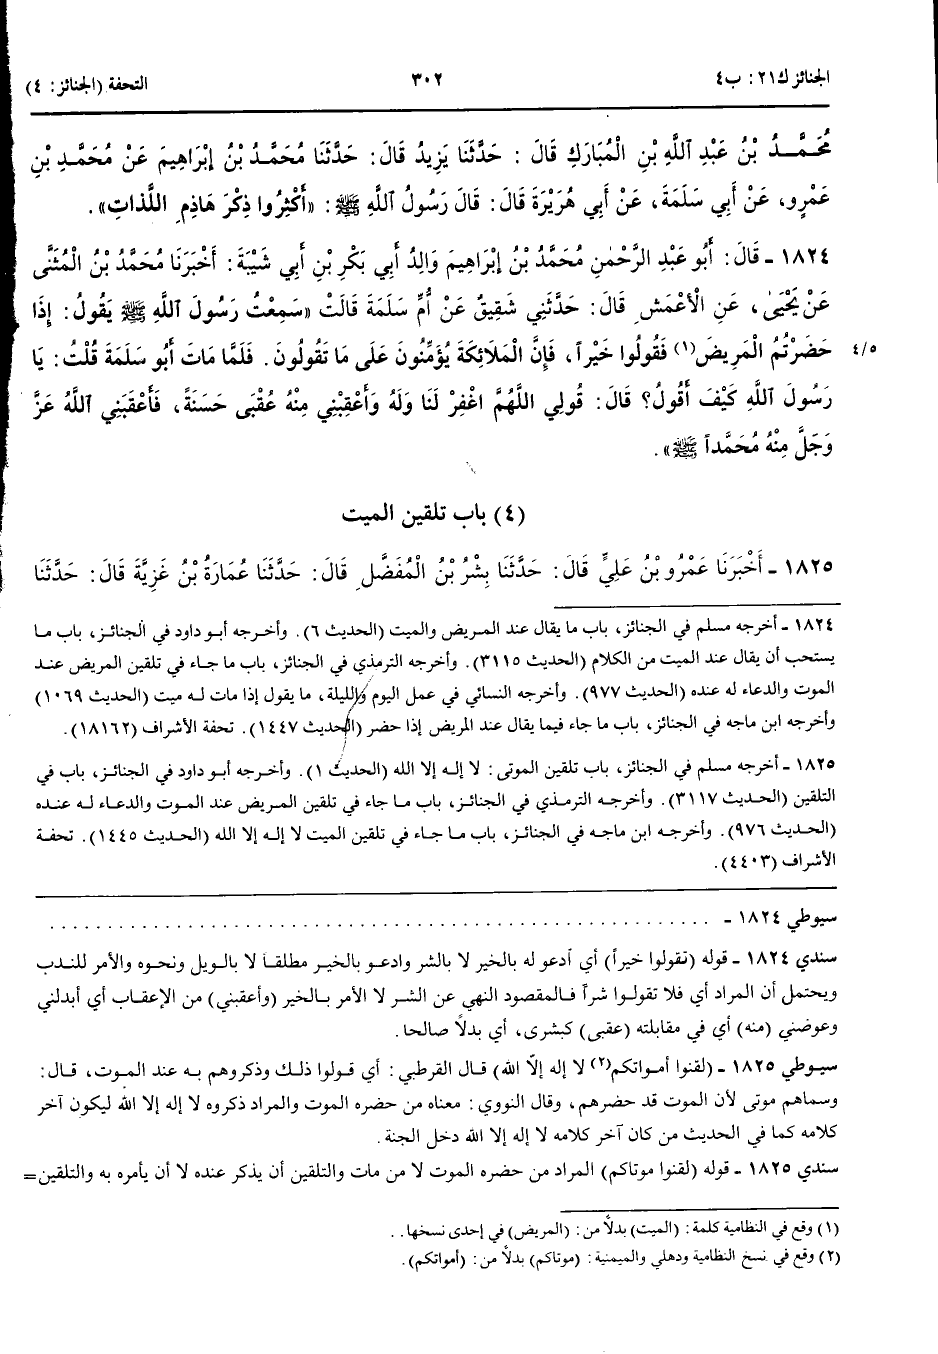 الجنائز ك٢١: ب٤
٣٠٢
التحفة (الجنائز: ٤)
مُحَمَّدُ بْنُ عَبْدِ ٱللَّهِ بْنِ الْمُبَارَكِ قَالَ: حَدَّثَنَا يَزِيدُ قَالَ: حَدَّثَنَا مُحَمَّدُ بْنُ إِبْرَاهِيمَ عَنْ مُحَمَّدِ بْنِ
عَمْرٍو، عَنْ أَبِي سَلَمَةَ، عَنْ أَبِي هُرَيْرَةَ قَالَ: قَالَ رَسُولُ ٱللَّهِ ﷺ: «أَكْثِرُوا ذِكْرَ هَاذِمِ اللَّذَاتِ».
١٨٢٤ ـ قَالَ: أَبُو عَبْدِ الرَّحْمٰنِ مُحَمَّدُ بْنُ إِبْرَاهِيمَ وَالِدُ أَبِي بَكْرِ بْنِ أَبِي شَيْبَةَ: أَخْبَرَنَا مُحَمَّدُ بْنُ الْمُثَنَّى
عَنْ يَحْيَىٰ، عَنِ الْأَعْمَشِ قَالَ: حَدَّثَنِي شَقِيقٌ عَنْ أُمِّ سَلَمَةَ قَالَتْ «سَمِعْتُ رَسُولَ ٱللَّهِ ﷺ يَقُولُ: إِذَا
حَضَرْتُمُ الْمَرِيضَ(١) فَقُولُوا خَيْراً، فَإِنَّ الْمَلَائِكَةَ يُؤَمِّنُونَ عَلَى مَا تَقُولُونَ. فَلَمَّا مَاتَ أَبُو سَلَمَةَ قُلْتُ: يَا
٤/٥
رَسُولَ ٱللَّهِ كَيْفَ أَقُولُ؟ قَالَ: قُولِي اللَّهُمَّ اغْفِرْ لَنَا وَلَهُ وَأَعْقِبْنِي مِنْهُ عُقْبَى حَسَنَةً، فَأَعْقَبَنِي ٱللَّهُ عَزَّ
وَجَلَّ مِنْهُ مُحَمَّداً ﷺ».
(٤) باب تلقين الميت
١٨٢٥ ـ أَخْبَرَنَا عَمْرُو بْنُ عَلِيٍّ قَالَ: حَدَّثَنَا بِشْرُ بْنُ الْمُفَضَّلِ قَالَ: حَدَّثَنَا عُمَارَةُ بْنُ غَزِيَّةَ قَالَ: حَدَّثَنَا
١٨٢٤ ـ أخرجه مسلم في الجنائز، باب ما يقال عند المريض والميت (الحديث ٦). وأخرجه أبو داود في الجنائز، باب ما
يستحب أن يقال عند الميت من الكلام (الحديث ٣١١٥). وأخرجه الترمذي في الجنائز، باب ما جاء في تلقين المريض عند
الموت والدعاء له عنده (الحديث ٩٧٧). وأخرجه النسائي في عمل اليوم والليلة، ما يقول إذا مات له ميت (الحديث ١٠٦٩)
وأخرجه ابن ماجه في الجنائز، باب ما جاء فيما يقال عند المريض إذا حضر (الحديث ١٤٤٧). تحفة الأشراف (١٨١٦٢).
١٨٢٥ ـ أخرجه مسلم في الجنائز، باب تلقين الموتى: لا إله إلا الله (الحديث ١). وأخرجه أبو داود في الجنائز، باب في
التلقين (الحديث ٣١١٧). وأخرجه الترمذي في الجنائز، باب ما جاء في تلقين المريض عند الموت والدعاء له عنده
(الحديث ٩٧٦). وأخرجه ابن ماجه في الجنائز، باب ما جاء في تلقين الميت لا إله إلا الله (الحديث ١٤٤٥). تحفة
الأشراف (٤٤٠٣).
سيوطي ١٨٢٤ ـ . . . . . . . . . . . . . . . . . . . . . . . . . . . . . . . . . . . . . . . .
سندي ١٨٢٤ ـ قوله (تقولوا خيراً) أي أدعو له بالخير لا بالشر وادعو بالخير مطلقاً لا بالويل ونحوه والأمر للندب
ويحتمل أن المراد أي فلا تقولوا شراً فالمقصود النهي عن الشر لا الأمر بالخير (وأعقبني) من الإعقاب أي أبدلني
وعوضني (منه) أي في مقابلته (عقبى) كبشرى، أي بدلاً صالحا.
سيوطي ١٨٢٥ ـ (لقنوا أمواتكم(٢) لا إله إلاّ الله) قال القرطبي: أي قولوا ذلك وذكروهم به عند الموت، قال:
وسماهم موتى لأن الموت قد حضرهم، وقال النووي: معناه من حضره الموت والمراد ذكروه لا إله إلا الله ليكون آخر
كلامه كما في الحديث من كان آخر كلامه لا إله إلا الله دخل الجنة.
سندي ١٨٢٥ ـ قوله (لقنوا موتاكم) المراد من حضره الموت لا من مات والتلقين أن يذكر عنده لا أن يأمره به والتلقين=
(١) وقع في النظامية كلمة: (الميت) بدلاً من: (المريض) في إحدى نسخها. .
(٢) وقع في نسخ النظامية ودهلي والميمنية: (موتاكم) بدلاً من: (أمواتكم).